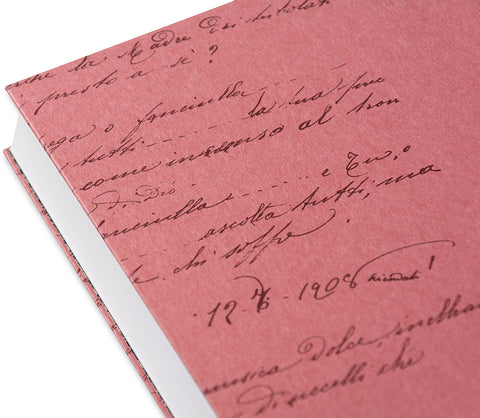 che la Madre dei
presto a sè?
o fanciulla la tua prec
tutti
come incenso al tron
di Dio
fanciulla e Tu,
ascolta tutti, ma
chi soffre.
17-7-1908
musica dolce,
di uccelli che